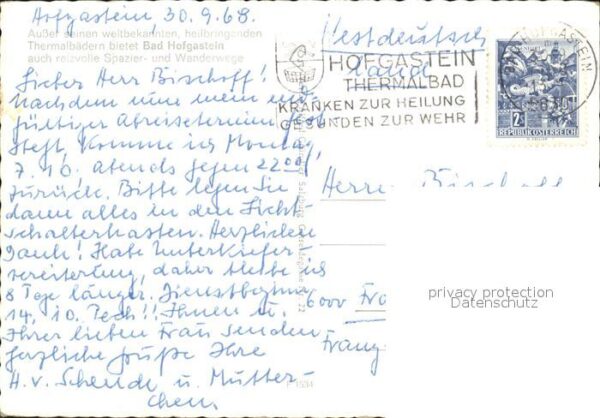 Hofgastein, 30.9.68.
Außer seinen weltbekannten, heilbringenden
Thermalbädern bietet Bad Hofgastein
auch reizvolle Spazier- und Wanderwege
Lieber Herr Bischoff!
Nachdem nun mein end-
gültiger Abreisetermin fest-
steht, komme ich Montag,
7.10. abends gegen 22 00
zurück. Bitte legen Sie
dann alles in den Licht-
schalterkasten. Herzlichen
Dank! Habe Unterkiefer-
vereiterung, daher bleibe ich
8 Tage länger. Dienstbeginn
14.10. Pech!! Ihnen u.
Ihrer lieben Frau senden
herzliche Grüße Ihre
H. v. Schende u. Mutter-
chen.
Westdeutsch
land
HOFGASTEIN
THERMALBAD
KRANKEN ZUR HEILUNG
GESUNDEN ZUR WEHR
HOFGASTEIN
2 S
REPUBLIK ÖSTERREICH
Herrn Bischoff
6000 Fra
Franz
privacy protection
Datenschutz